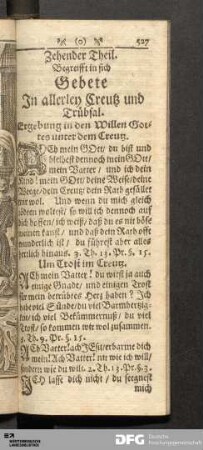 (o) 527
Zehender Theil.
Begreifft in sich
Gebete
In allerley Creutz und
Trübsal.
Ergebung in den Willen Got-
tes unter dem Creutz.
ACh mein GOtt/ du bist und
bleibest dennoch mein GOtt/
mein Vatter/ und ich dein
Kind! mein Gott/ deine Weise/ deine
Wege/ dein Creutz/ dein Rath gefället
mir wol. Und wenn du mich gleich
tödten woltest/ so will ich dennoch auf
dich hoffen/ ich weiß/ daß du es nit böse
meinen kanst/ und daß dein Rath offt
wunderlich ist/ du führest aber alles
herrlich hinaus. 3. Th. 13. Pr. §. 15.
Um Trost im Creutz.
ACh mein Vatter! du wirst ja auch
einige Gnade/ und einigen Trost
für mein betrübtes Hertz haben? Ich
habe viel Sünde/ du viel Barmhertzig-
keit/ ich viel Bekümmernuß/ du viel
Trost/ so kommen wir wol zusammen.
3. Th. 9. Pr. §. 15.
ACh Vatter! ach JEsu! erbarme dich
mein! Ach Vatter! nit wie ich will/
sondern wie du wilt. 2. Th. 13. Pr. §. 3.
ICH lasse dich nicht/ du segnest
mich
DFG Deutsche
Forschungsgemeinschaft